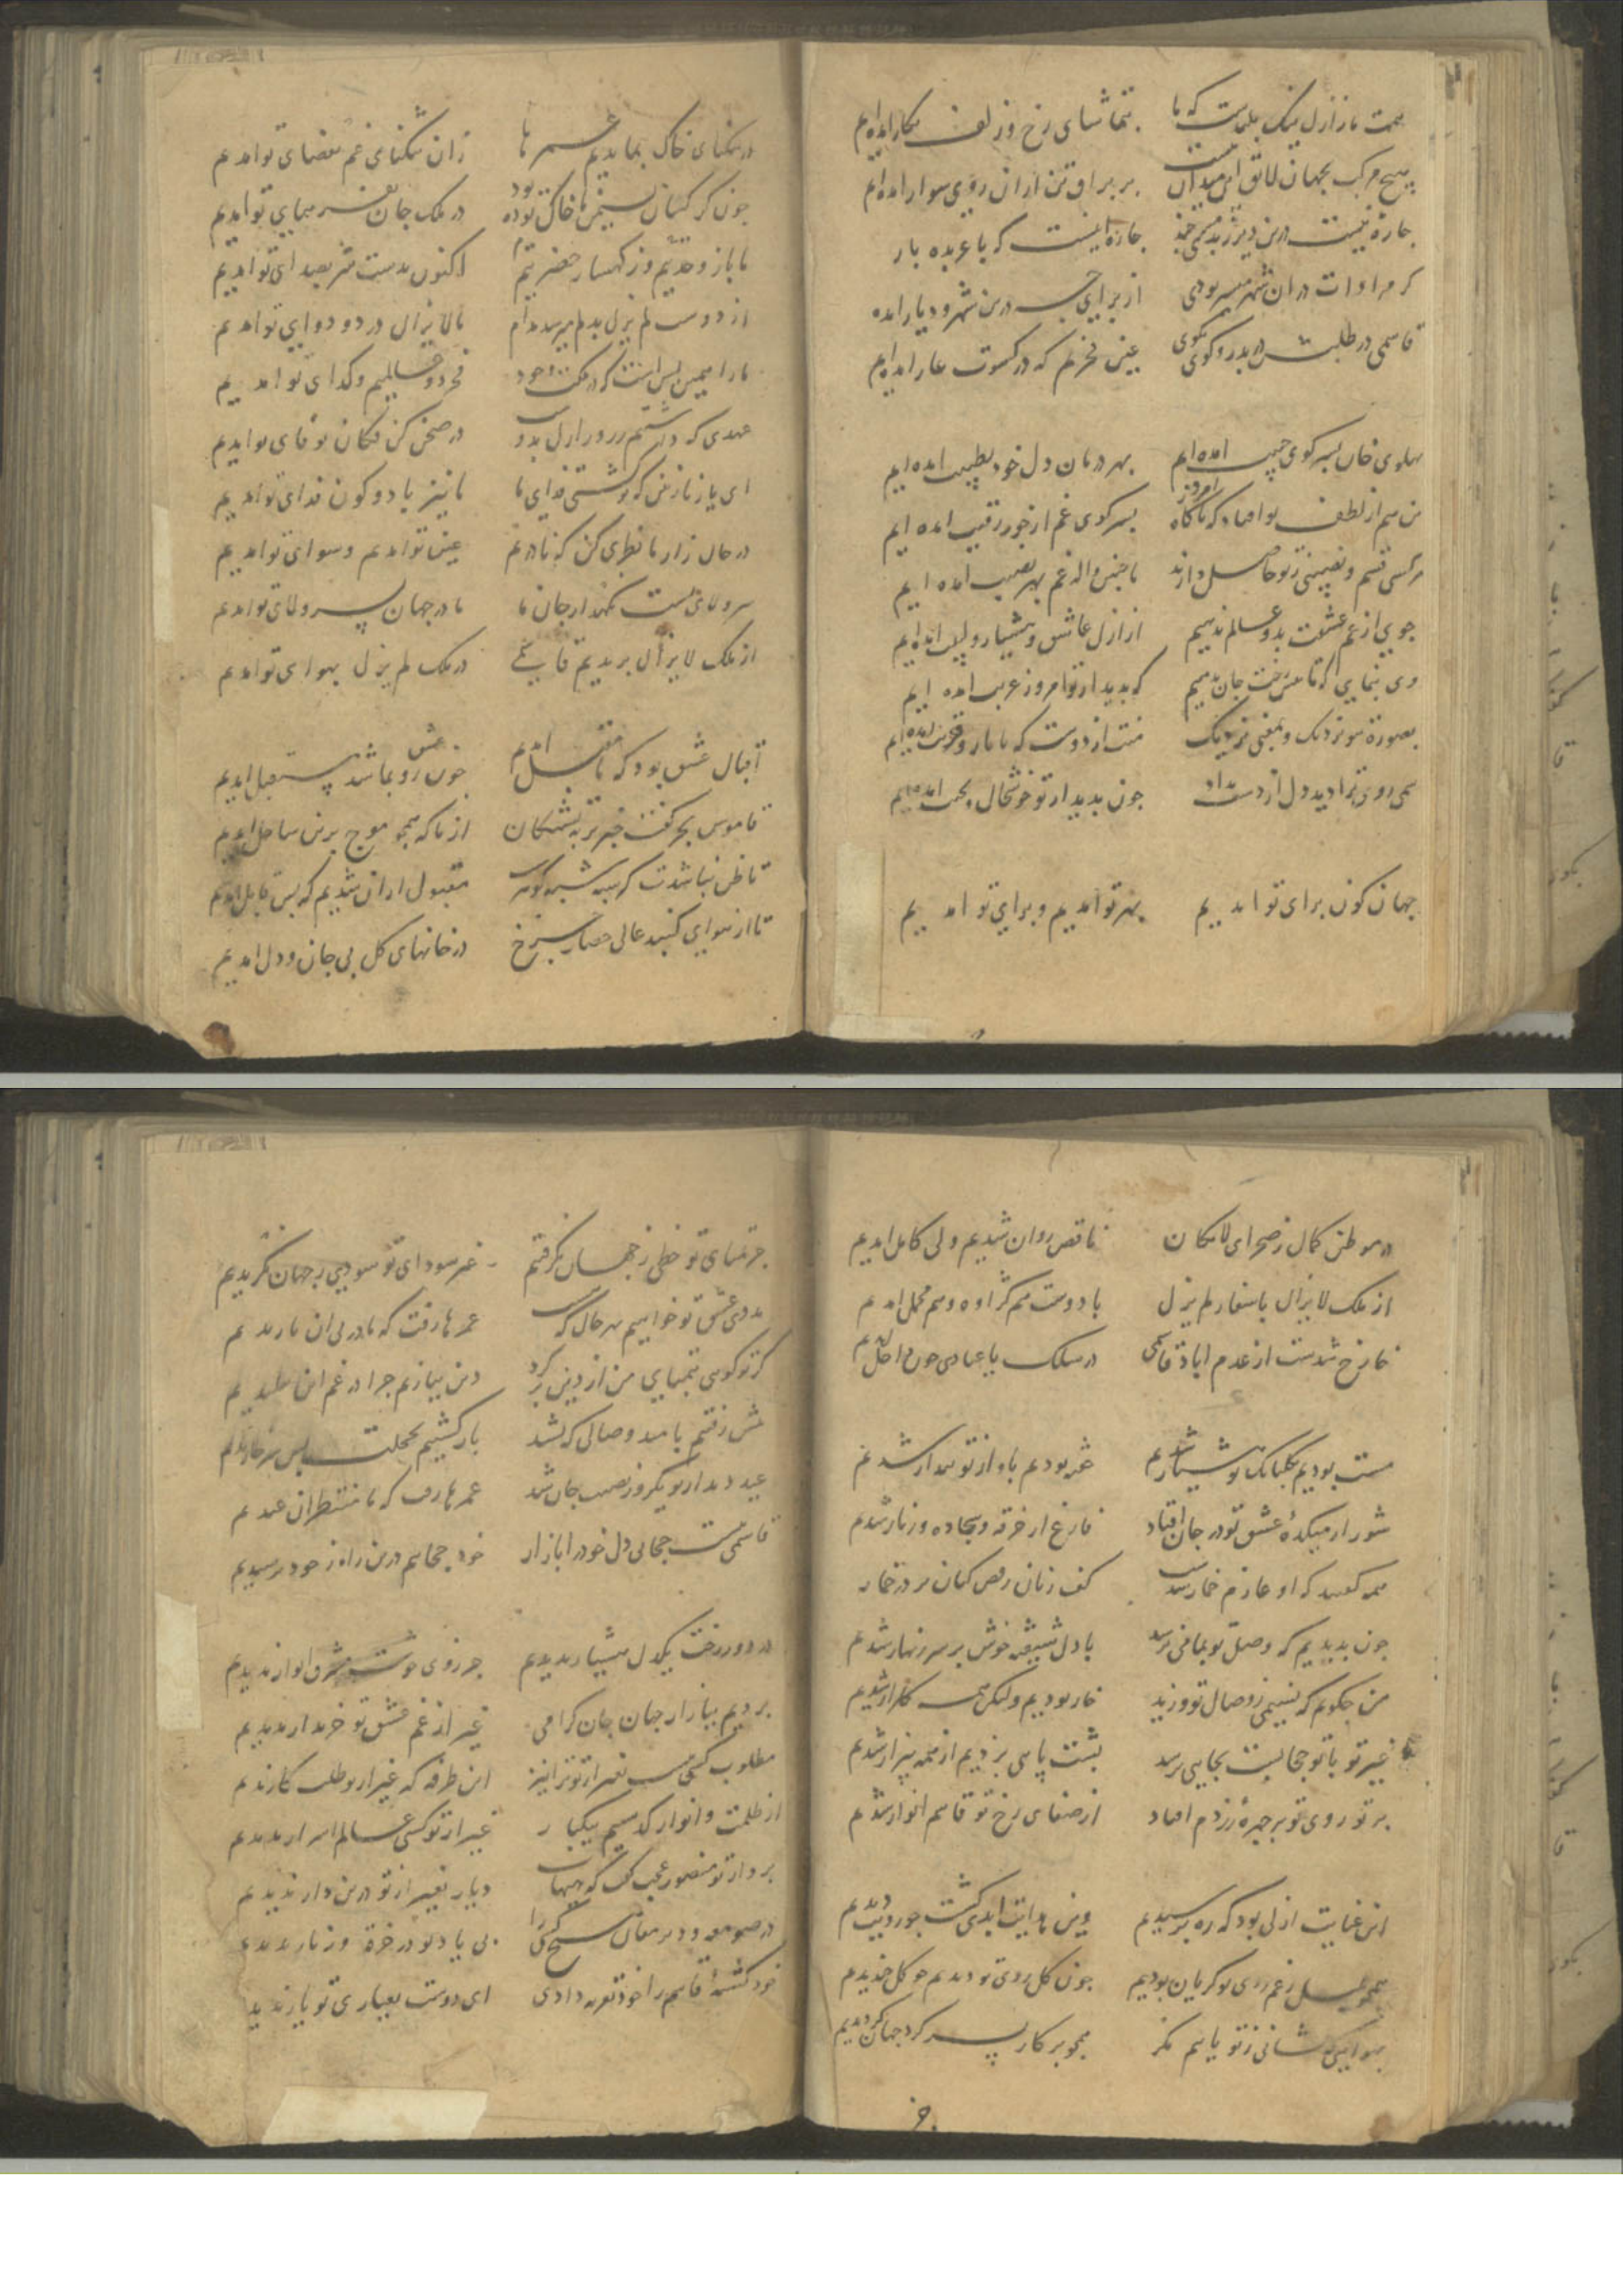 همت ما ز ازل نیک بلندست که ما بتماشای رخ و زلف نگار آمده‌ایم
هیچ مرکب بجهان لایق این میدان نیست بر براق تن ازان روی سوار آمده‌ایم
چاره نیست درین دیر چاره اینست که با عربده یار
کر مراوات دران شهر میسر بودی از برای چه درین شهر و دیار آمده
قاسمی در طلبش در بدر و کوی بکوی عین فخریم که در کسوت عار آمده‌ایم
بسر کوی حبیب آمده‌ایم بهر درمان دل خود بطبیب آمده‌ایم
من هم از لطف تو که ناکاه بسر کوی غم از جور رقیب آمده‌ایم
هر کسی قسم و نصیبی ز تو حاصل دارند ما چنین واله غم بهر نصیب آمده‌ایم
جوی از غم عشقت بدو عالم ندهیم از ازل عاشق و هشیار و لبیب آمده‌ایم
روی بنمایی که تا پیش رخت جان بدهیم که بدیدار تو امروز غریب آمده‌ایم
بصورة تو نزدیک و بمعنی نزدیک منت از دوست که با یار و قریب آمده‌ایم
روی ترا دید دل از دست داد چون بدیدار تو خوشحال و آمده‌ایم
جهان کون برای تو آمدیم بهر تو آمدیم و برای تو آمدیم
در تنکنای خاک بماندیم عمرها زان تنکنای غم بفضای تو آمدیم
چون کرکسان نشیمن ما خاک توده بود در ملک جان بفر همای تو آمدیم
ما باز وحدتیم و ز کهسار حضرتیم اکنون بدست شه بصدای تو آمدیم
از دوست لم یزل بدلم میرسد مدام تا لایزال در دو دوای تو آمدیم
ما را همین بس است که در ملک وجود فخر دو عالمیم و کدای تو آمدیم
عهدی که داشتیم در روز ازل بدوست در صحن کن فکان بوفای تو آمدیم
ای یار نازنین که تو کشتی فدای ما ما نیز با دو کون فدای تو آمدیم
در حال زار ما نظری کن که نادریم عین تو آمدیم و سوای تو آمدیم
سر ولای تست نکهدار جان ما ما در جهان بسر ولای تو آمدیم
از ملک لایزال بریدیم قاسمی در ملک لم یزل بهوای تو آمدیم
اقبال عشق بود که ما مقبل آمدیم چون عشق رو نما شد مستقبل آمدیم
قاموس بحر کفت خبر بر به تشنکان از ما که همچو موج برین ساحل آمدیم
تا ظن نباشدت که مقبول ازان شدیم که بس قابل آمدیم
تا از هوای کنبد عالی حصار چرخ در خانهای کل بی جان و دل آمدیم
در موطن کمال ز صحرای لامکان ناقص روان شدیم ولی کامل آمدیم
از ملک لایزال باسفار لم یزل با دوست هم کژاوه و هم محمل آمدیم
فارغ شدست از عدم آباد قاسمی در مسلک یا عبادی چون داخل آمدیم
مست بودیم بکلبانک تو هشیار شدیم خفته بودیم باواز تو بیدار شدیم
شور از میکدهٔ عشق تو در جان افتاد فارغ از خرقه و سجاده و زنار شدیم
همه کفتند که او عازم خمار شدست کف زنان رقص کنان بر در خمار
چون بدیدیم که وصل تو بما می‌نرسد با دل شیفته خوش بر سر زنهار شدیم
من چکویم که نسیمی ز وصال تو وزید خار بودیم ولیکن همه کلزار شدیم
غیر تو با تو حجابست بجایی نرسد پشت پایی بزدیم از همه بیزار شدیم
پرتو روی تو بر چهرهٔ زردم افتاد از صفای رخ تو قاسم انوار شدیم
این عنایت ازلی بود که ره پرسیدیم وین هدایت ابدی کشت چو رویت دیدیم
همچو بلبل ز غم روی تو کریان بودیم چون کل روی تو دیدیم چو کل خندیدیم
نشانی ز تو یابیم مکر همچو پرکار بسر کرد جهان کردیدیم
جز تمنای تو حظی ز جهان نکرفتیم غیر سودای تو سودی ز جهان نکزیدیم
مددی عشق تو خواهیم بهر حال که هست عمرها رفت که ما در پی آن تاییدیم
کر تو کویی بتمنایی من از دین برکرد دین ببازیم چرا در غم این تقلیدیم
پیش رفتیم بامید وصالی که نشد
عید دیدار تو یکروز نصیب جان شد عمرها رفت که ما منتظران عیدیم
قاسمی هست حجابی دل خود را باز آر خود حجابیم درین راه ز خود ترسیدیم
در دور رخت یکدل هشیار ندیدیم جز روی خوشت مشرق انوار ندیدیم
بردیم ببازار جهان جان کرامی غیر از غم عشق تو خریدار ندیدیم
مطلوب کسی نیست بغیر از تو ترا نیز این طرفه که غیر از تو طلبکار ندیدیم
از ظلمت و انوار کذشتیم بیکبار غیر از تو کسی عالم اسرار ندیدیم
بر دار تو منصور عجب کفت که هیهات دیار بغیر از تو درین دار ندیدیم
در صومعه و دیر مغان هیچ کسی را بی یاد تو در خرقه و زنار ندیدیم
خود کشتهٔ قاسم را خود تعزیه دادی ای دوست بعیاری تو یار ندیدیم